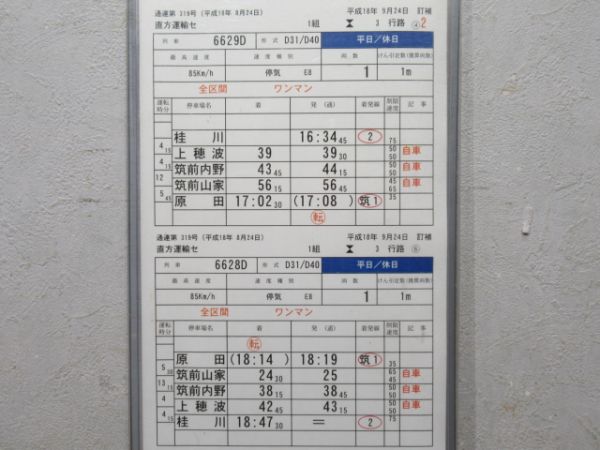 通達第 319号（平成18年 8月24日） 平成18年 9月24日 訂補
直方運輸セ 1組 3 行路 ④2
列車 6629D 形式 D31/D40 平日／休日
最高速度 速度種別 両数 けん引定数(換算両数)
85Km/h 停気 E8 1 1m
全区間 ワンマン
運転時分 停車場名 着 発（通） 着発線 制限速度 記事
桂川 16:34 45 2 75
4 15 上穂波 39 39 30 50 50 自車
4 15 筑前内野 43 45 44 15 50 50 自車
12 筑前山家 56 15 56 45 45 65 自車
5 45 原田 17:02 30 (17:08 ) 筑1 35
転
通達第 319号（平成18年 8月24日） 平成18年 9月24日 訂補
直方運輸セ 1組 3 行路 ⑤
列車 6628D 形式 D31/D40 平日／休日
最高速度 速度種別 両数 けん引定数(換算両数)
85Km/h 停気 E8 1 1m
全区間 ワンマン
運転時分 停車場名 着 発（通） 着発線 制限速度 記事
転
原田 (18:14 ) 18:19 筑1 35
5 30 筑前山家 24 30 25 65 45 自車
13 15 筑前内野 38 15 38 45 50 50 自車
4 上穂波 42 45 43 15 50 50 自車
4 15 桂川 18:47 30 ＝ 2 75